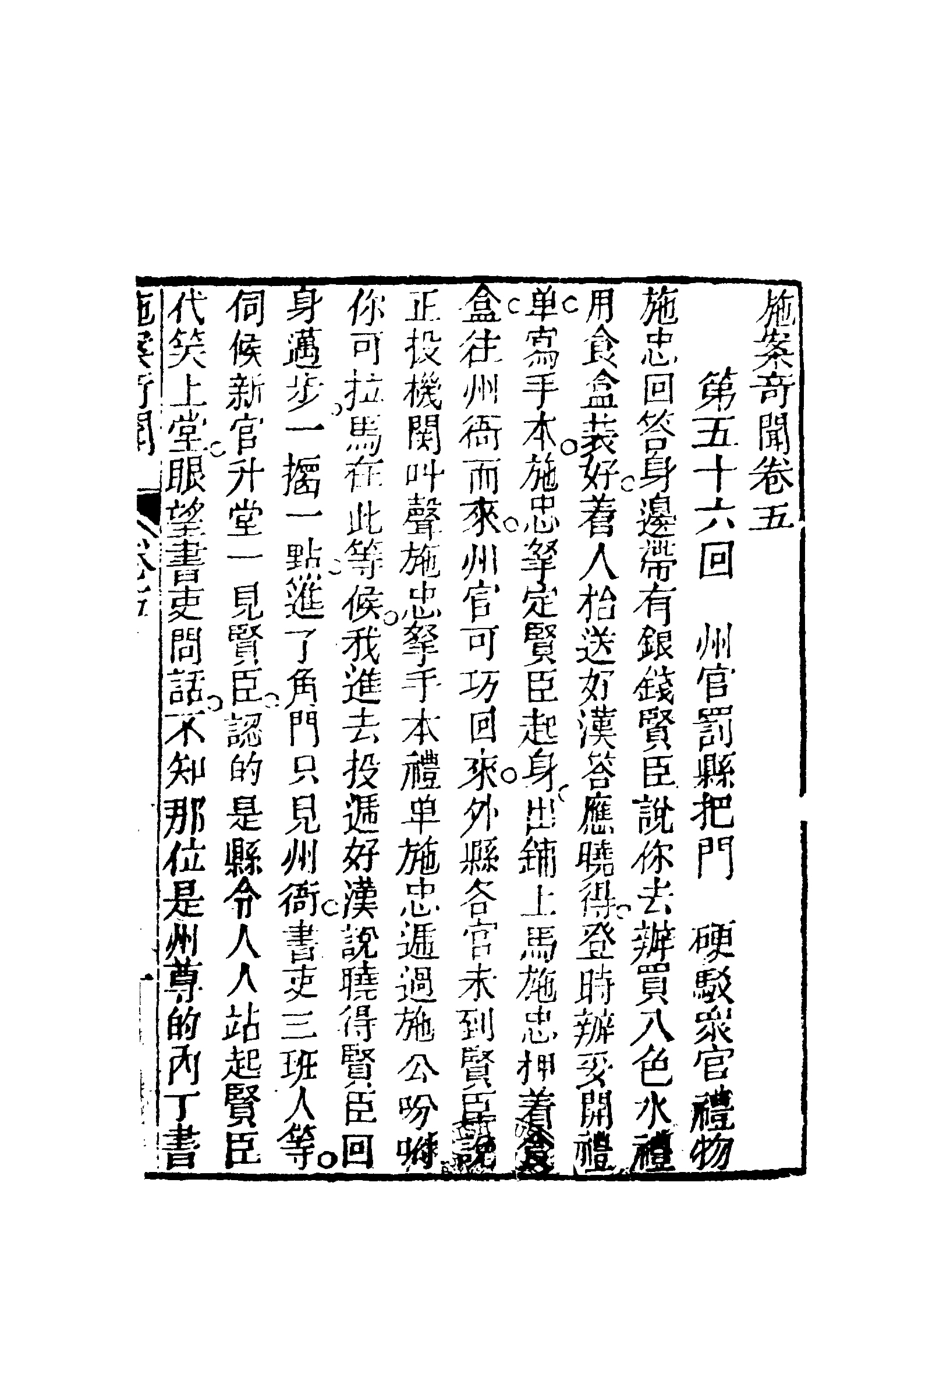 施案奇聞卷五
第五十六回　州官罰縣把門　硬駁衆官禮物
施忠回答身邊帶有銀錢賢臣說你去辦買八色水禮
用食盒裝好。着人枱送好漢答應曉得。登時辦妥開禮
单。寫手本。施忠拏定賢臣起身。出鋪上馬施忠押着食
盒。往州衙而來。州官可巧回來。外縣各官未到賢臣說
正投機関叫聲施忠拏手本禮单施忠遞過施公吩咐
你可拉馬在此等候。我進去投遞好漢說曉得賢臣回
身邁步。一擺一點。進了角門只見州衙。書吏三班人等。
伺候新官升堂一見賢臣。認的是縣令人人站起賢臣
代笑上堂。眼望書吏問話。不知那位是州尊的內丁書
施案奇聞　卷五